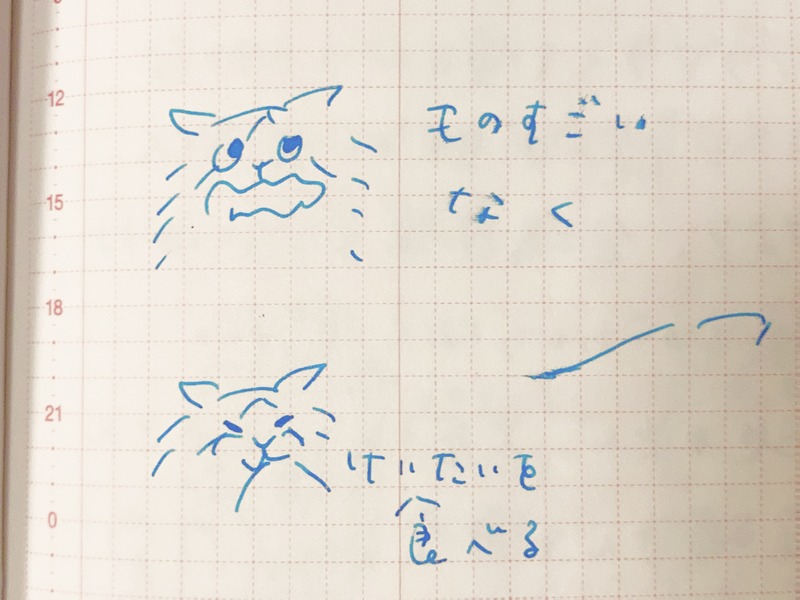 12
モのすごい
なく
15
18
21
けいたいを
食べる
0